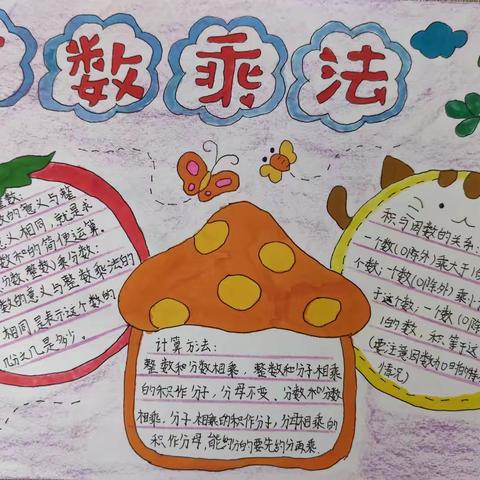 数乘法
数:
数的意义与整
义相同,就是求
数和的简便运算。
分数(整数)乘分数:
数的意义与整数乘法的
相同,是表示这个数的
几分之几是多少。
计算方法:
整数和分数相乘,整数和分子相乘
的积作分子,分母不变、分数和分数
相乘,分子相乘的积作分子,分母相乘的
积作分母,能约分的要先约分再乘.
积与因数的关系:
一个数(0除外)乘大于1的
个数;一个数(0除外)乘小
于这个数;一个数(0除
1的数,积等于这
(要注意因数为0时的特
情况)